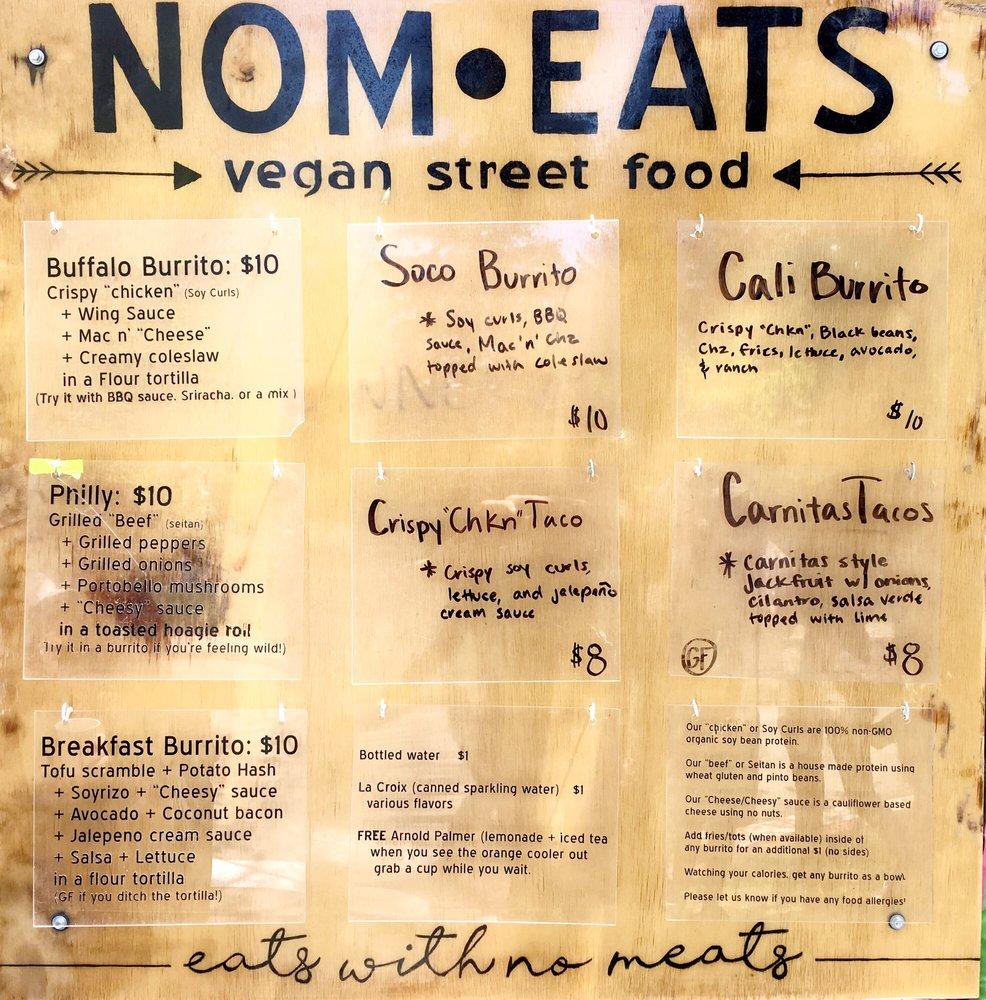 NOM•EATS
vegan street food
Buffalo Burrito: $10
Crispy "chicken" (Soy Curls)
+ Wing Sauce
+ Mac n' "Cheese"
+ Creamy coleslaw
in a Flour tortilla
(Try it with BBQ sauce. Sriracha. or a mix)
Soco Burrito
* Soy curls, BBQ
sauce, Mac'n' chz
topped with coleslaw
$10
Cali Burrito
Crispy "Chkn", Black beans,
Chz, fries, lettuce, avocado,
& ranch
$10
Philly: $10
Grilled "Beef" (seitan)
+ Grilled peppers
+ Grilled onions
+ Portobello mushrooms
+ "Cheesy" sauce
in a toasted hoagie roll
(Try it in a burrito if you're feeling wild!)
Crispy "Chkn" Taco
* Crispy soy curls,
lettuce, and jalepeño
cream sauce
$8
Carnitas Tacos
* Carnitas style
jackfruit w/ onions,
cilantro, salsa verde
topped with lime
GF
$8
Breakfast Burrito: $10
Tofu scramble + Potato Hash
+ Soyrizo + "Cheesy" sauce
+ Avocado + Coconut bacon
+ Jalepeno cream sauce
+ Salsa + Lettuce
in a flour tortilla
(GF if you ditch the tortilla!)
Bottled water $1
La Croix (canned sparkling water) $1
various flavors
FREE Arnold Palmer (lemonade + iced tea
when you see the orange cooler out
grab a cup while you wait.
Our "chicken" or Soy Curls are 100% non-GMO
organic soy bean protein.
Our "beef" or Seitan is a house made protein using
wheat gluten and pinto beans.
Our "Cheese/Cheesy" sauce is a cauliflower based
cheese using no nuts.
Add fries/tots (when available) inside of
any burrito for an additional $1 (no sides)
Watching your calories, get any burrito as a bowl
Please let us know if you have any food allergies!
eats with no meats